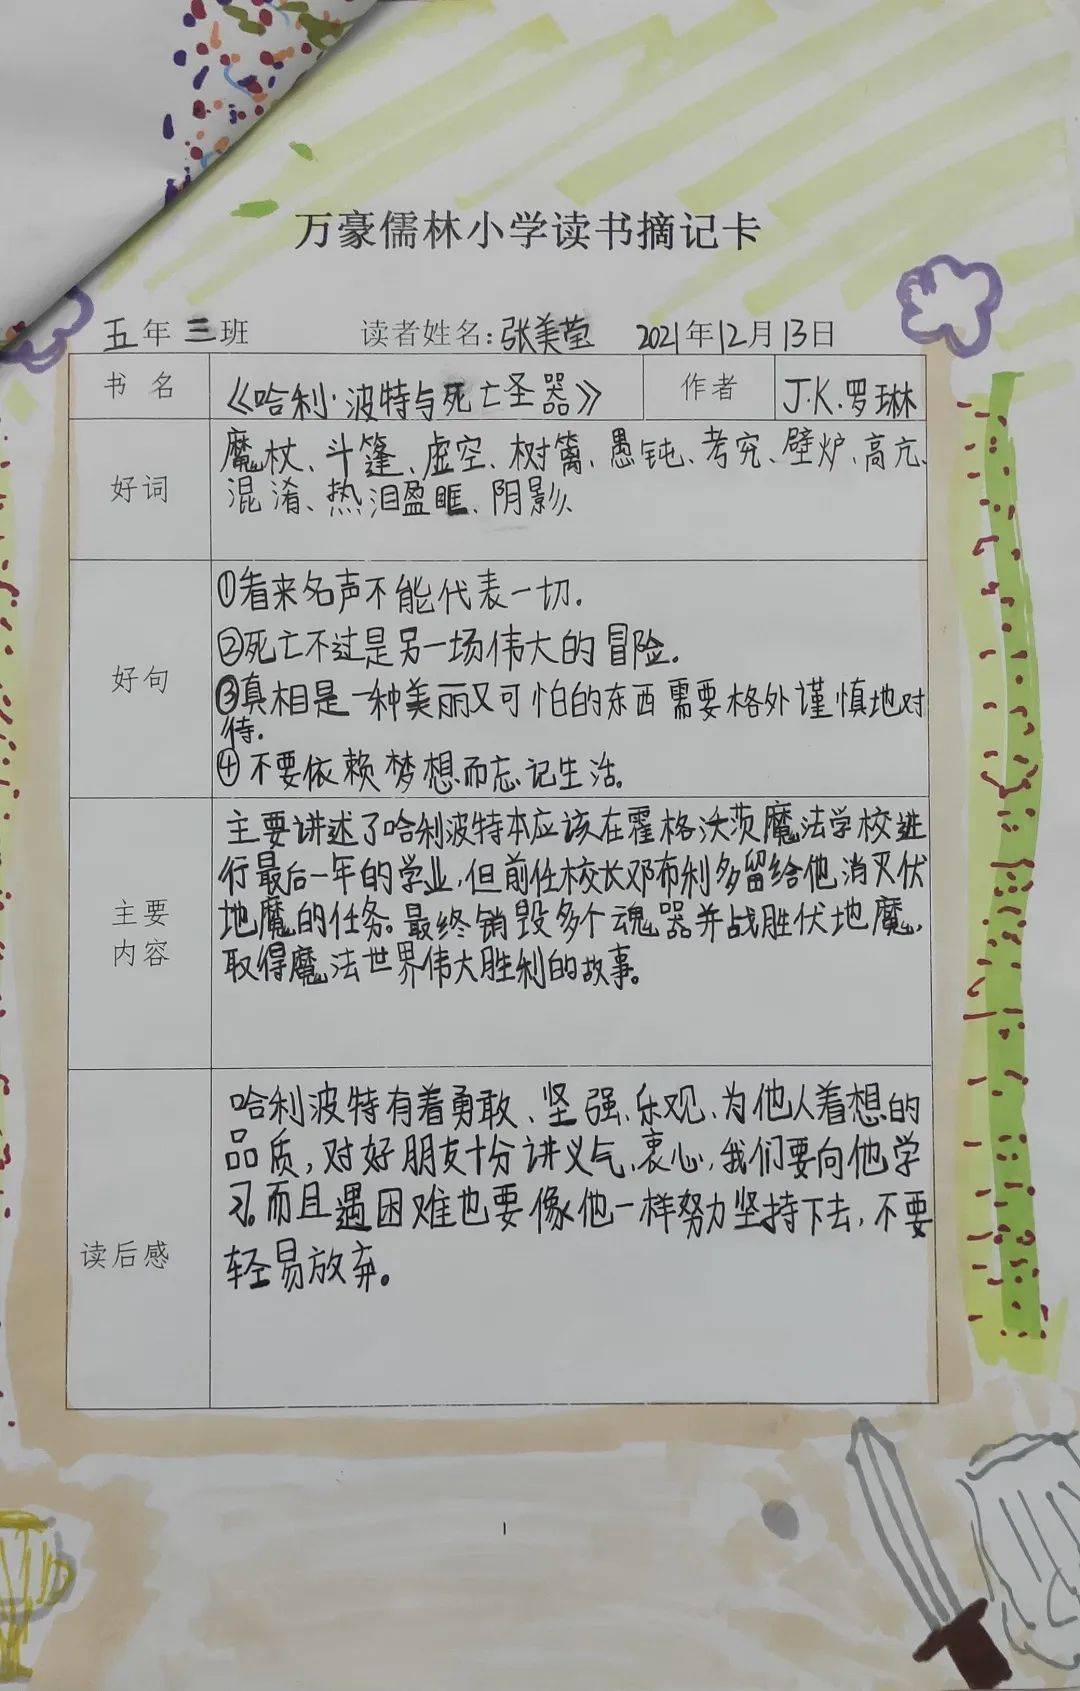 万豪儒林小学读书摘记卡
五年三班 读者姓名:张美莹 2021年12月13日
书名 《哈利·波特与死亡圣器》 作者 J.K.罗琳
好词
魔杖、斗篷、虚空、树篱、愚钝、考究、壁炉、高亢、
混淆、热泪盈眶、阴影、
好句
①看来名声不能代表一切.
②死亡不过是另一场伟大的冒险.
③真相是一种美丽又可怕的东西需要格外谨慎地对
待.
④不要依赖梦想而忘记生活.
主要
内容
主要讲述了哈利波特本应该在霍格沃茨魔法学校进
行最后一年的学业,但前任校长邓布利多留给他消灭伏
地魔的任务。最终销毁多个魂器并战胜伏地魔,
取得魔法世界伟大胜利的故事。
读后感
哈利波特有着勇敢、坚强、乐观、为他人着想的
品质,对好朋友十分讲义气、衷心,我们要向他学
习。而且遇困难也要像他一样努力坚持下去,不要
轻易放弃。
1